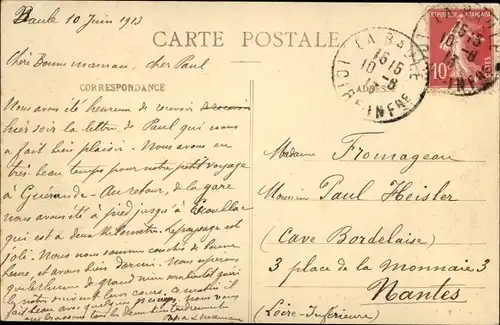 Baule 10 Juin 1913
CARTE POSTALE
Chère Bonne maman, cher Paul
CORRESPONDANCE
ADRESSE
LA BAULE
15 15
10 -6
LOIRE INFRE
REPUBLIQUE FRANÇAISE
10
POSTES
Nous avons été heureux de recevoir
hier soir la lettre de Paul qui nous
a fait bien plaisir. Nous avons eu
très beau temps pour notre petit voyage
à Guérande. Au retour, de la gare
nous avons été à pied jusqu'à Escoublac
à deux kilomètres. Le paysage est
joli. Nous nous sommes couchés de bonne
heure et avons bien dormi. Nous espérons
que de Grand'mère
la nôtre suivent leur cours. Ce matin il
fait beau avec quelques nuages. Nous
vous embrassons tous bien
Papa & Maman
Madame Fromageau
Monsieur Paul Heisler
(Cave Bordelaise)
3 place de la Monnaie 3
Nantes
(Loire-Inférieure)